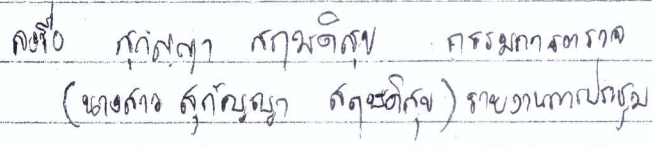 ลงชื่อ สุกัญญา สฤษดิสุข กรรมการตรวจ
(นางสาว สุกัญญา สฤษดิสุข) รายงานการประชุม